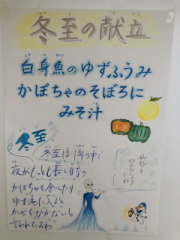 冬至の献立
白身魚のゆずふうみ
かぼちゃのそぼろに
みそ汁
冬至
冬至は1年の中で
夜がもっとも長い日
かぼちゃを食べたり
ゆず湯に入ると
かぜをひかないと
言われている